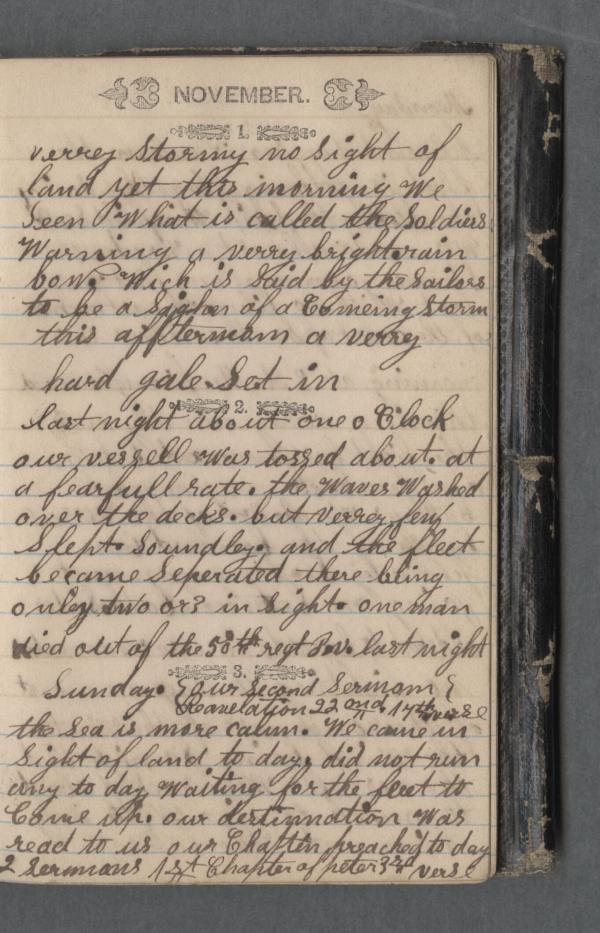 NOVEMBER.
1.
verrey Stormy no Sight of
land yet this morning We
Seen What is called the Soldiers
Warning a verrey bright rain
bow. Wich is Said by the Sailors
to be a Sighn of a Comeing Storm
this affternoon a verrey
hard gale Set in
2.
last night about one o Clock
our vessell Was tossed about. at
a fearfull rate. the Waves Washed
over the decks. but verrey few
Slept. Soundley. and the fleet
became Seperated there being
onley two or 3 in Sight. one man
died out of the 50th regt P.v. last night
3.
Sunday. {Our Second Sermom {
Reavelation 22 and. 17th verse
the Sea is more calm. We came in
Sight of land to day. did not run
any to day Waiting for the fleet to
Come up. our destinnation Was
read to us our Chaften preached to day
2 Sermons 1st Chapter of peter 3rd verse